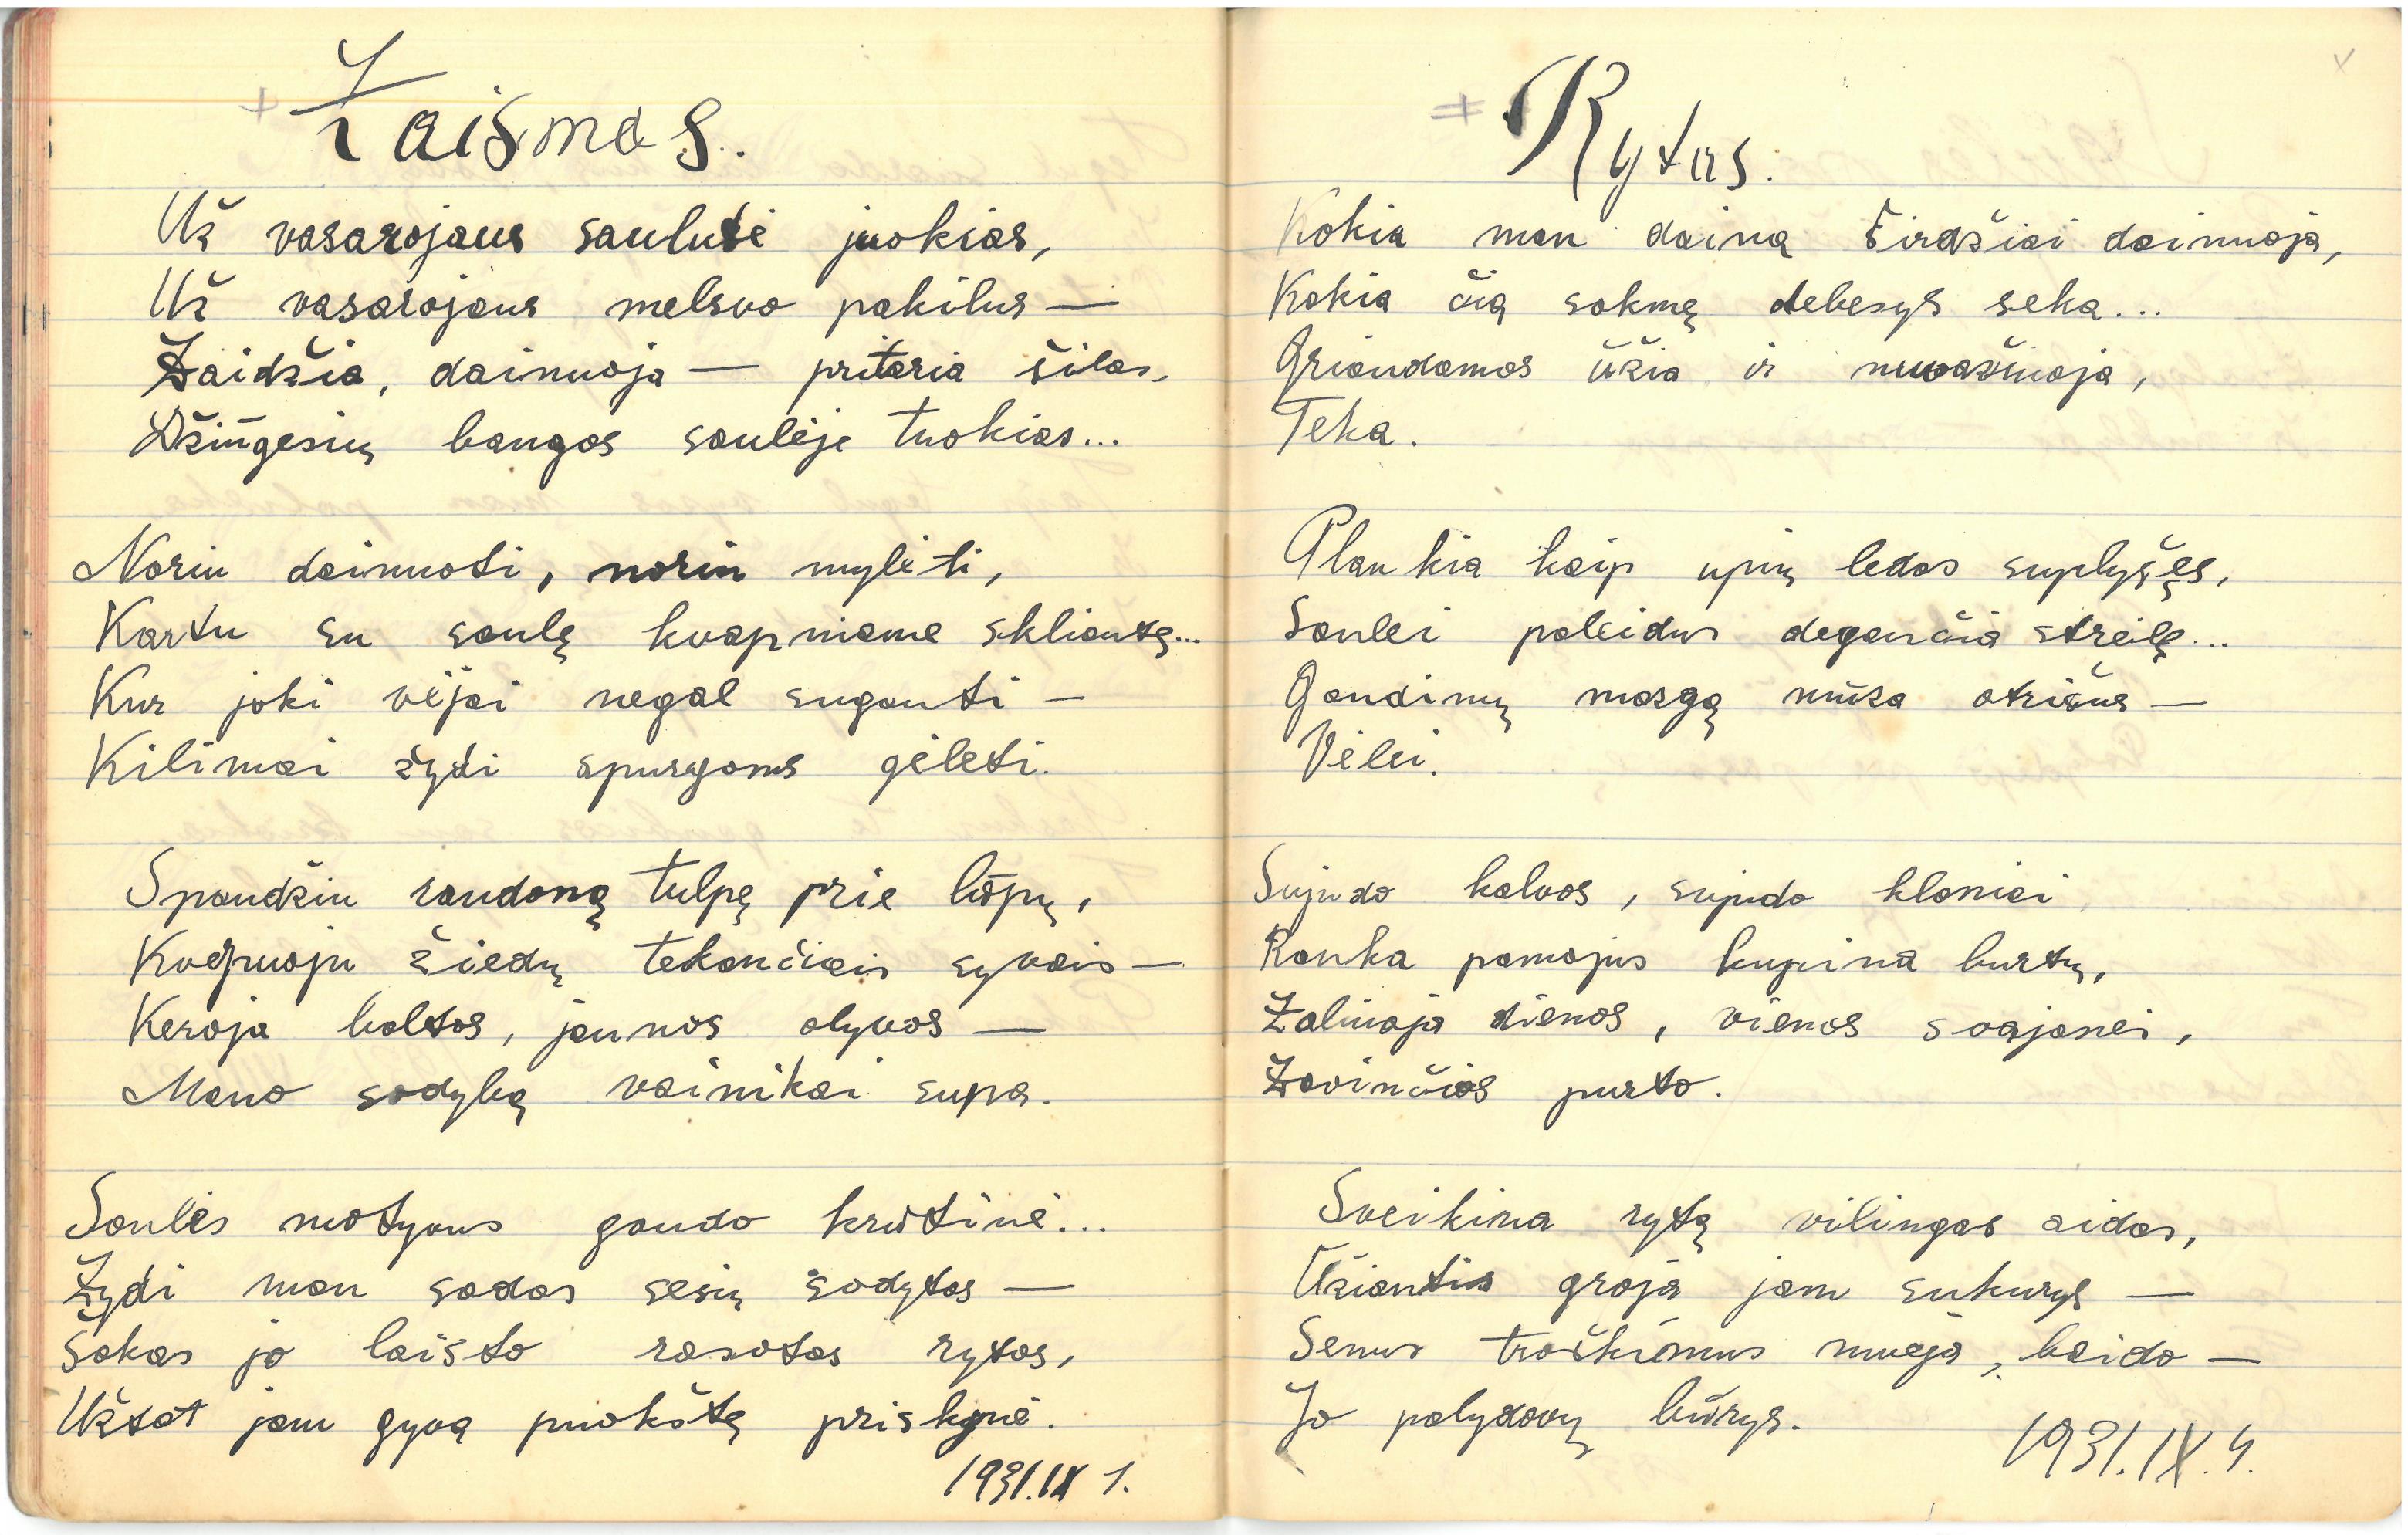 Žaismas.
Už vasarojaus saulutė juokias,
Už vasarojaus melsvo pakilus —
Žaidžia, dainuoja — pritaria šilas,
Džiūgesių bangos saulėje tuokias...
Noriu dainuoti, noriu mylėti,
Kartu su saulę kvapniame skliautę...
Kur joki vėjai negal sugauti —
Kilimai žydi spurgoms gėlėti.
Spaudžiu raudoną tulpę prie lūpų,
Kvėpuoju žiedų tekančiais syvais —
Keroja baltos, jaunos alyvos —
Mano sodybą vainikai supa.
Saulės motyvus gaudo krūtinė...
Žydi man sodas sesių sodytas —
Šakas jo laisto rasotas rytas,
Užtat jam gyvą puokštę priskynė.
1931.IX 1.
Rytas.
Kokia man daina širdžiai dainuoja,
Kokia čia sakmę debesys seka...
Griaudamos ūžia ir nuvažiuoja,
Teka.
Plaukia kaip upių ledas suplyšęs,
Saulei paleidus degančia strėlę...
Gandinų mazgą mūsa atrišus —
Vėlei.
Sujudo kalvos, sujudo kloniai
Ranka pamojus kupina burtų,
Žaliuoja dienos, vienos svajonei,
Žavinčios purto.
Sveikina rytą vilingas aidas,
Ūžiantis groja jam sukurys —
Senus troškimus nuėja, baido —
Jo palydovų būrys.
1931.IX.4.